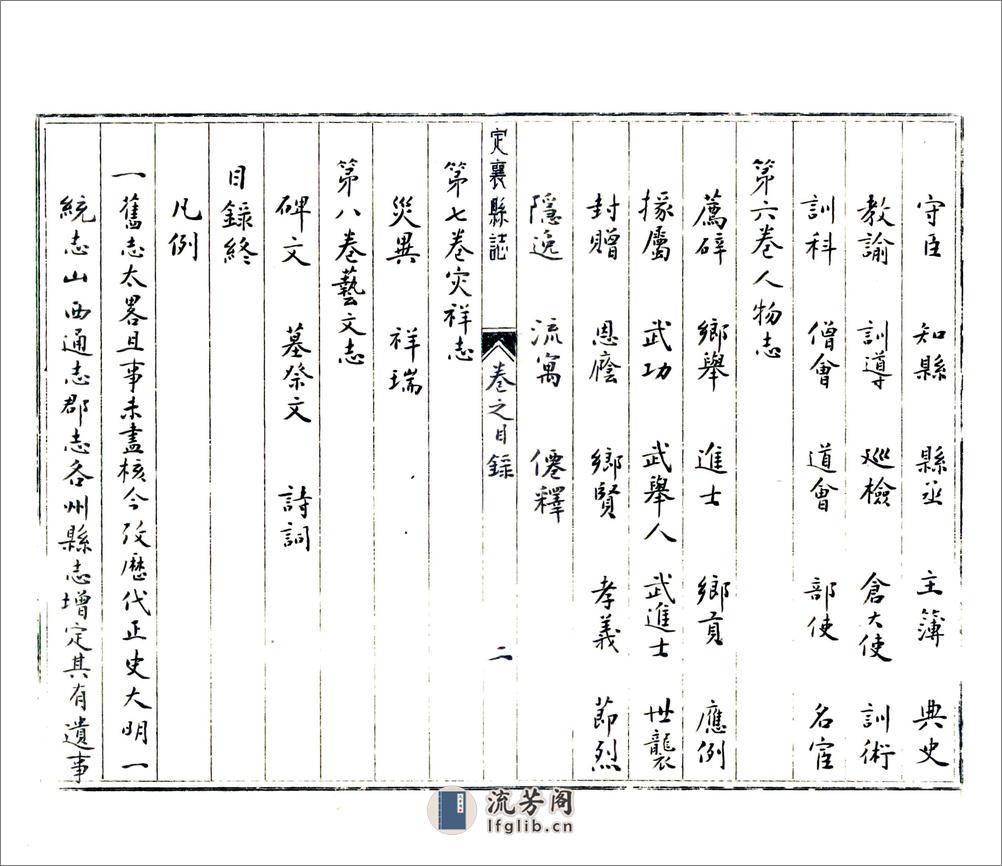 守臣 知縣 縣丞 主簿 典史
教諭 訓導 廵檢 倉大使 訓術
訓科 僧會 道會 部使 名宦
第六卷人物志
薦辟 鄉舉 進士 鄉貢 應例
掾屬 武功 武舉人 武進士 世襲
封贈 恩廕 鄉賢 孝義 節烈
隱逸 流寓 僊釋
定襄縣誌 卷之目錄 二
第七卷灾祥志
災異 祥瑞
第八卷藝文志
碑文 墓祭文 詩詞
目錄終
凡例
一舊志太畧且事未盡核今攷歷代正史大明一
統志山西通志郡志各州縣志增定其有遺事
流芳阁
lfglib.cn